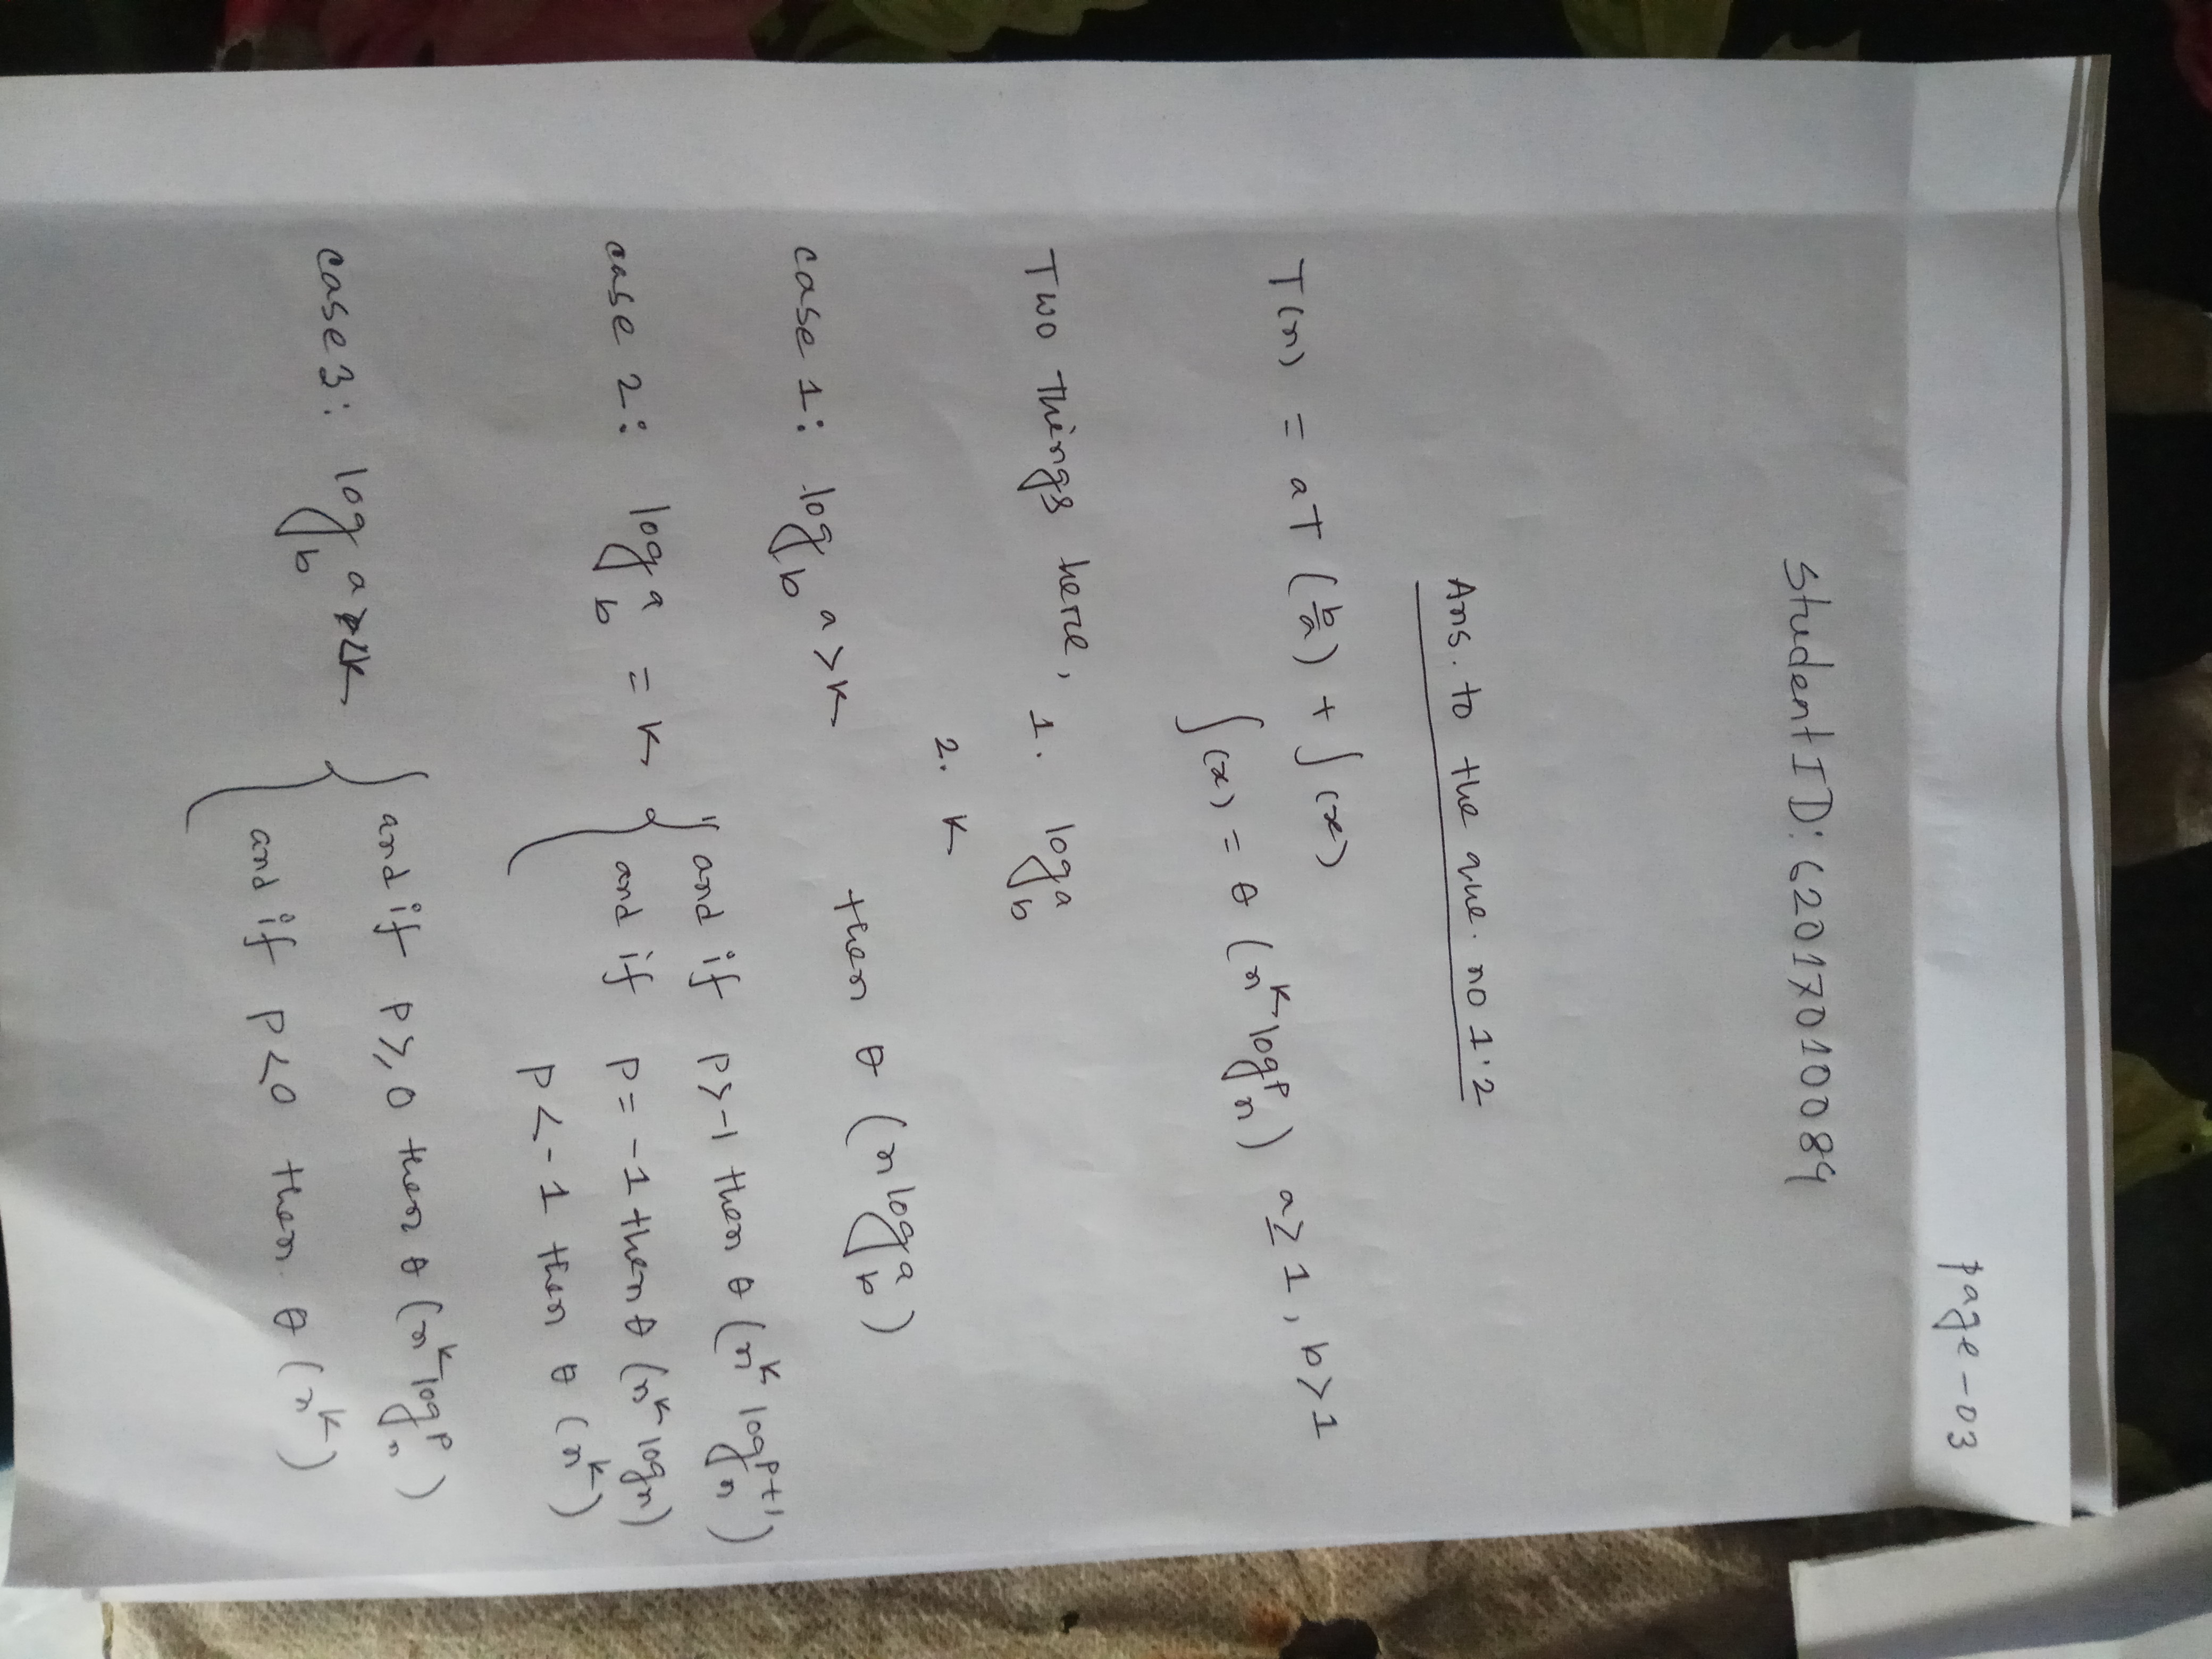 page-03
Student ID: 62017010089
Ans. to the que. no 1.2
T(n) = aT (b/a) + f(x)
f(x) = θ (n^k log^p n) a≥1, b>1
Two things here, 1. log_b^a
2. K
case 1: log_b a > K then θ (n log_b^a)
case 2: log_b^a = K { and if P>-1 then θ (n^k log^{p+1} n)
and if P=-1 then θ (n^k log n)
P<-1 then θ (n^k)
case 3: log_b a < K { and if P≥0 then θ (n^k log^p n)
and if P<0 then θ (n^k)